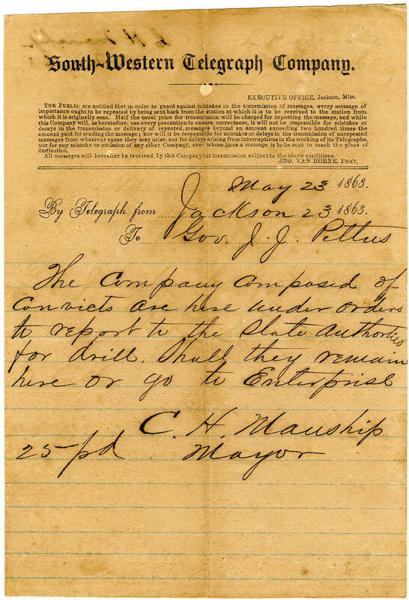 South-Western Telegraph Company.
EXECUTIVE OFFICE, Jackson, Miss.
THE PUBLIC are notified that in order to guard against mistakes in the transmission of messages, every message of
importance ought to be repeated by being sent back from the station at which it is to be received to the station from
which it is originally sent. Half the usual price for transmission will be charged for repeating the message, and while
this Company will, as heretofore, use every precaution to ensure correctness, it will not be responsible for mistakes or
delays in the transmission or delivery of repeated messages beyond an amount exceeding two hundred times the
amount paid for sending the message; nor will it be responsible for mistakes or delays in the transmission of unrepeated
messages from whatever cause they may arise, nor for delays arising from interruptions in the working of its Telegraphs,
nor for any mistake or omission of any other Company, over whose lines a message is to be sent to reach the place of
destination.
All messages will hereafter be received by this Company for transmission subject to the above conditions.
JNO. VAN HORNE, Pres't.
May 23 1863.
By Telegraph from Jackson 23 1863.
To Gov. J. J. Pettus
The Company composed of
convicts are here under orders
to report to the State Authorities
for drill. Shall they remain
here or go to Enterprise
C. H. Manship
25 pd Mayor